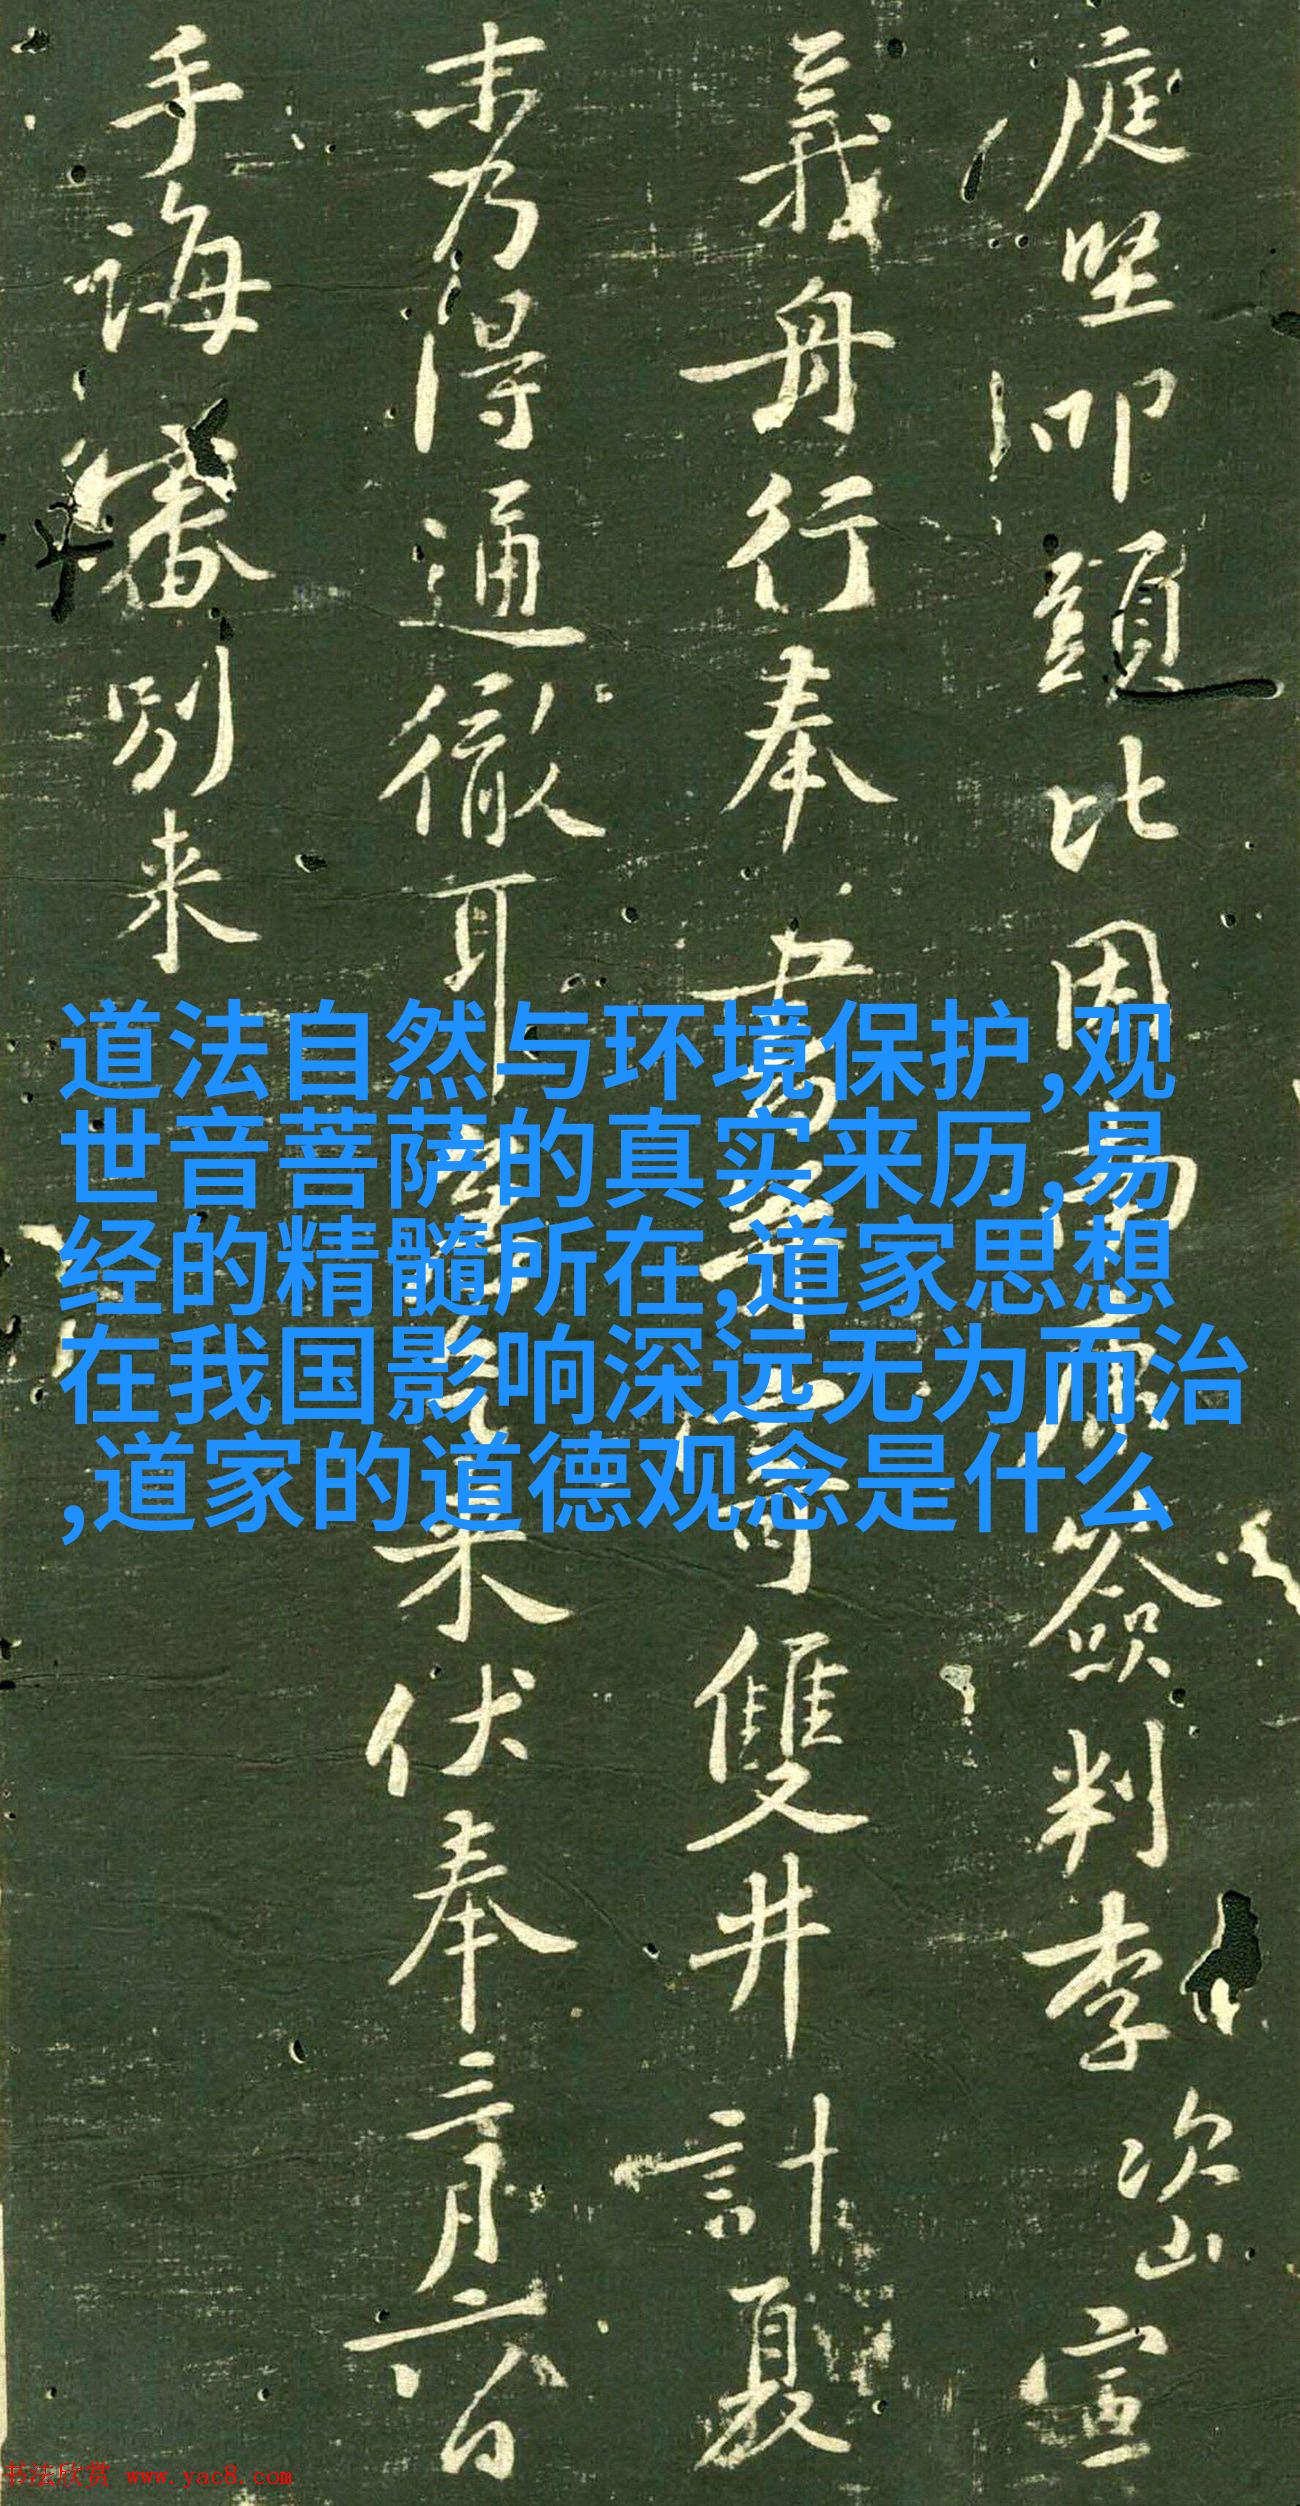 庭堅叩頭比因南康簽判李次山宣
義舟行奉書并寄雙井計
未乃得通徹耳
来伏奉三月六日
手誨審別来
道法自然与环境保护,观
世音菩萨的真实来历,易
经的精髓所在,道家思想
在我国影响深远无为而治
,道家的道德观念是什么
书法欣赏 www.yac8.com